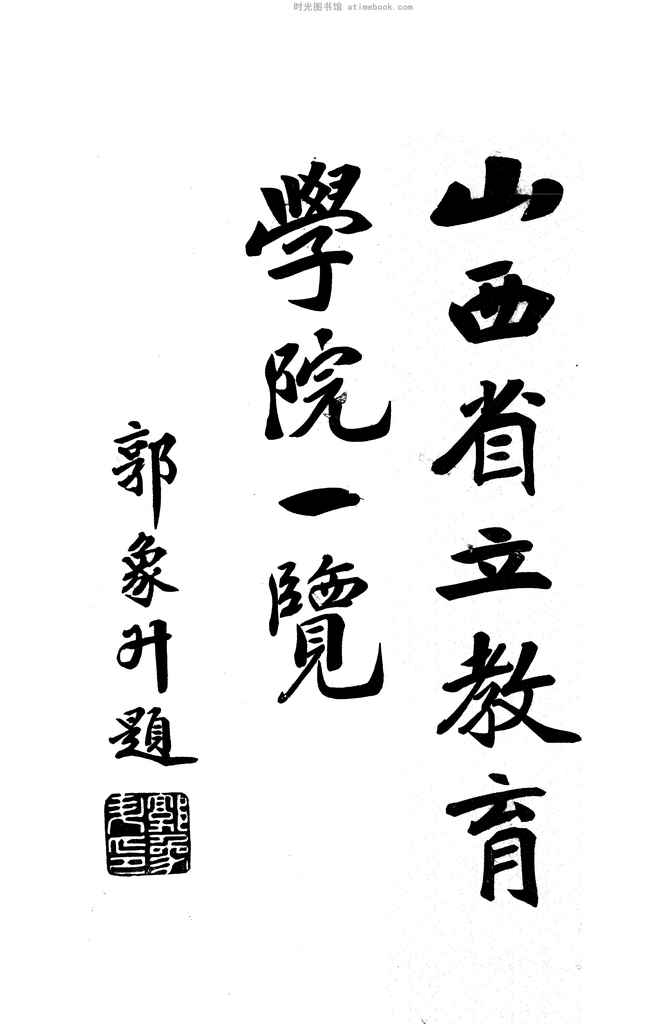 时光图书馆 atimebook.com
山西省立教育
學院一覽
郭象升題
郭象升印